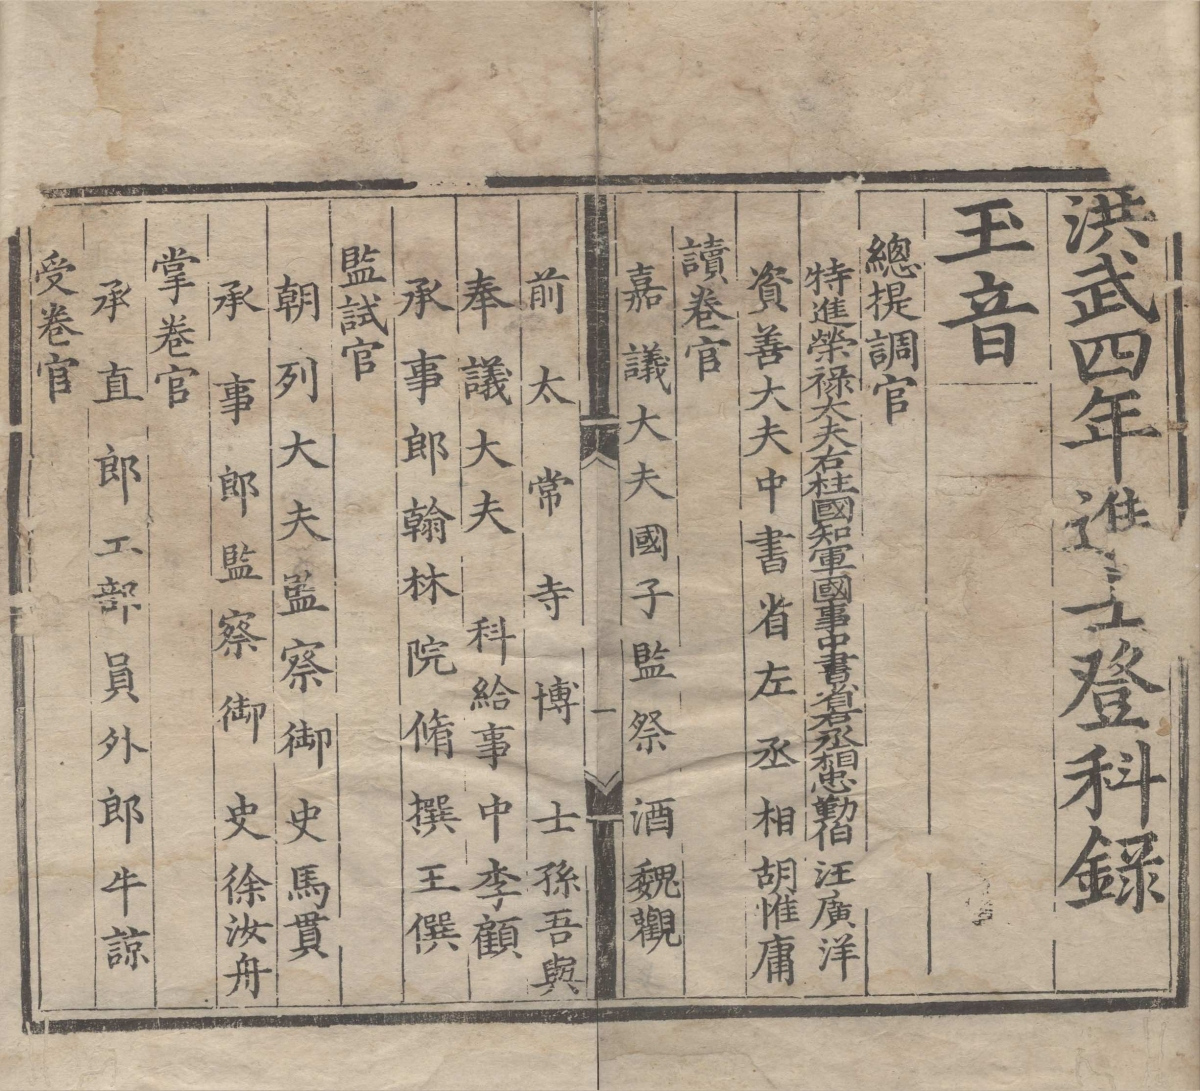 洪武四年進士登科錄
玉音
總提調官
特進榮祿大夫右柱國知軍國事中書省右丞相忠勤伯汪廣洋
資善大夫中書省左丞相胡惟庸
讀卷官
嘉議大夫國子監祭酒魏觀
前太常寺博士孫吾與
奉議大夫科給事中李顧
承事郎翰林院脩撰王僎
監試官
朝列大夫監察御史馬貫
承事郎監察御史徐汝舟
掌卷官
承直郎工部員外郎牛諒
受卷官
一